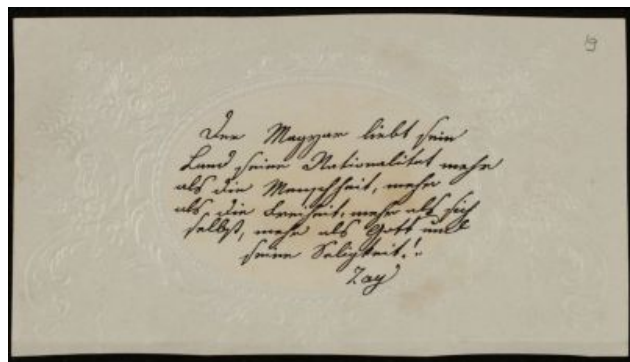 19
Der Magyar liebt sein
Land seine Nationalität mehr
als die Menschheit, mehr
als die Freiheit, mehr als sich
selbst, mehr als Gott und
seine Seligkeit!"
Zay